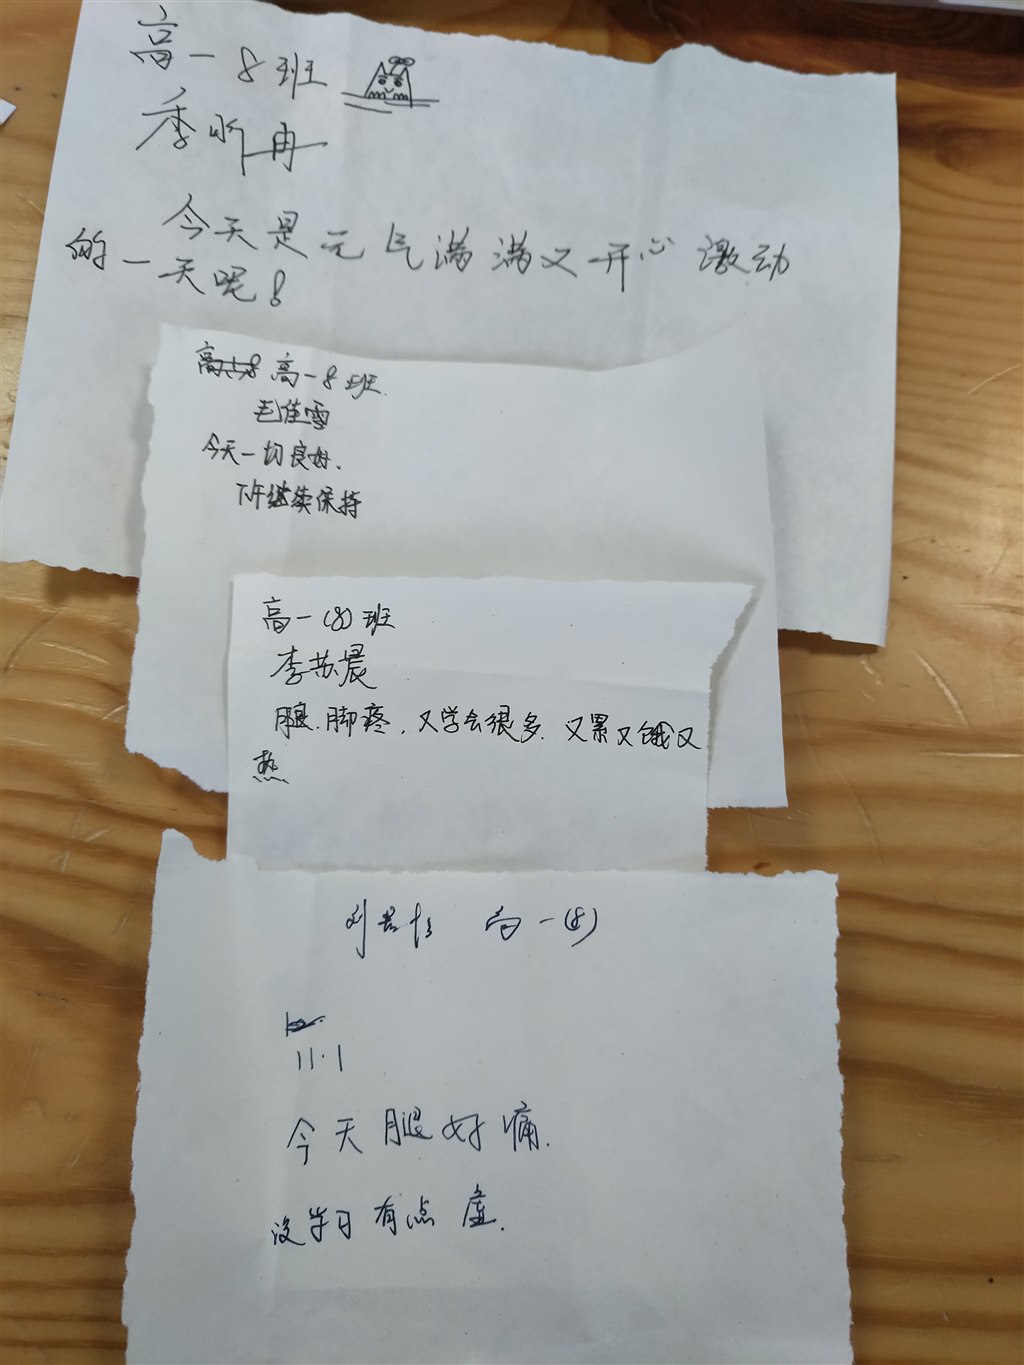 高一8班
季昕冉
今天是元气满满又开心激动
的一天呢!
高一8班.
毛佳雪
今天一切良好.
下午继续保持
高一(8)班
李苏晨
腿.脚疼,又学会很多.又累又饿又
热
刘 高一(8)
11.1
今天腿好痛.
没学习有点虚.